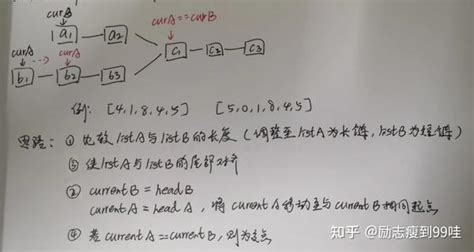 curB
curA==curB
curA
curA
a1
a2
c1
c2
c3
b1
b2
b3
例: [4,1,8,4,5] [5,0,1,8,4,5]
思路: ① 比较listA与listB的长度 (调整至listA为长链, listB为短链)
③ 使listA与listB的尾部对齐
② currentB = headB
currentA = headA , 将currentA移动至与currentB相同起点
④ 若currentA == currentB, 则为交点
知乎 @励志瘦到99哇